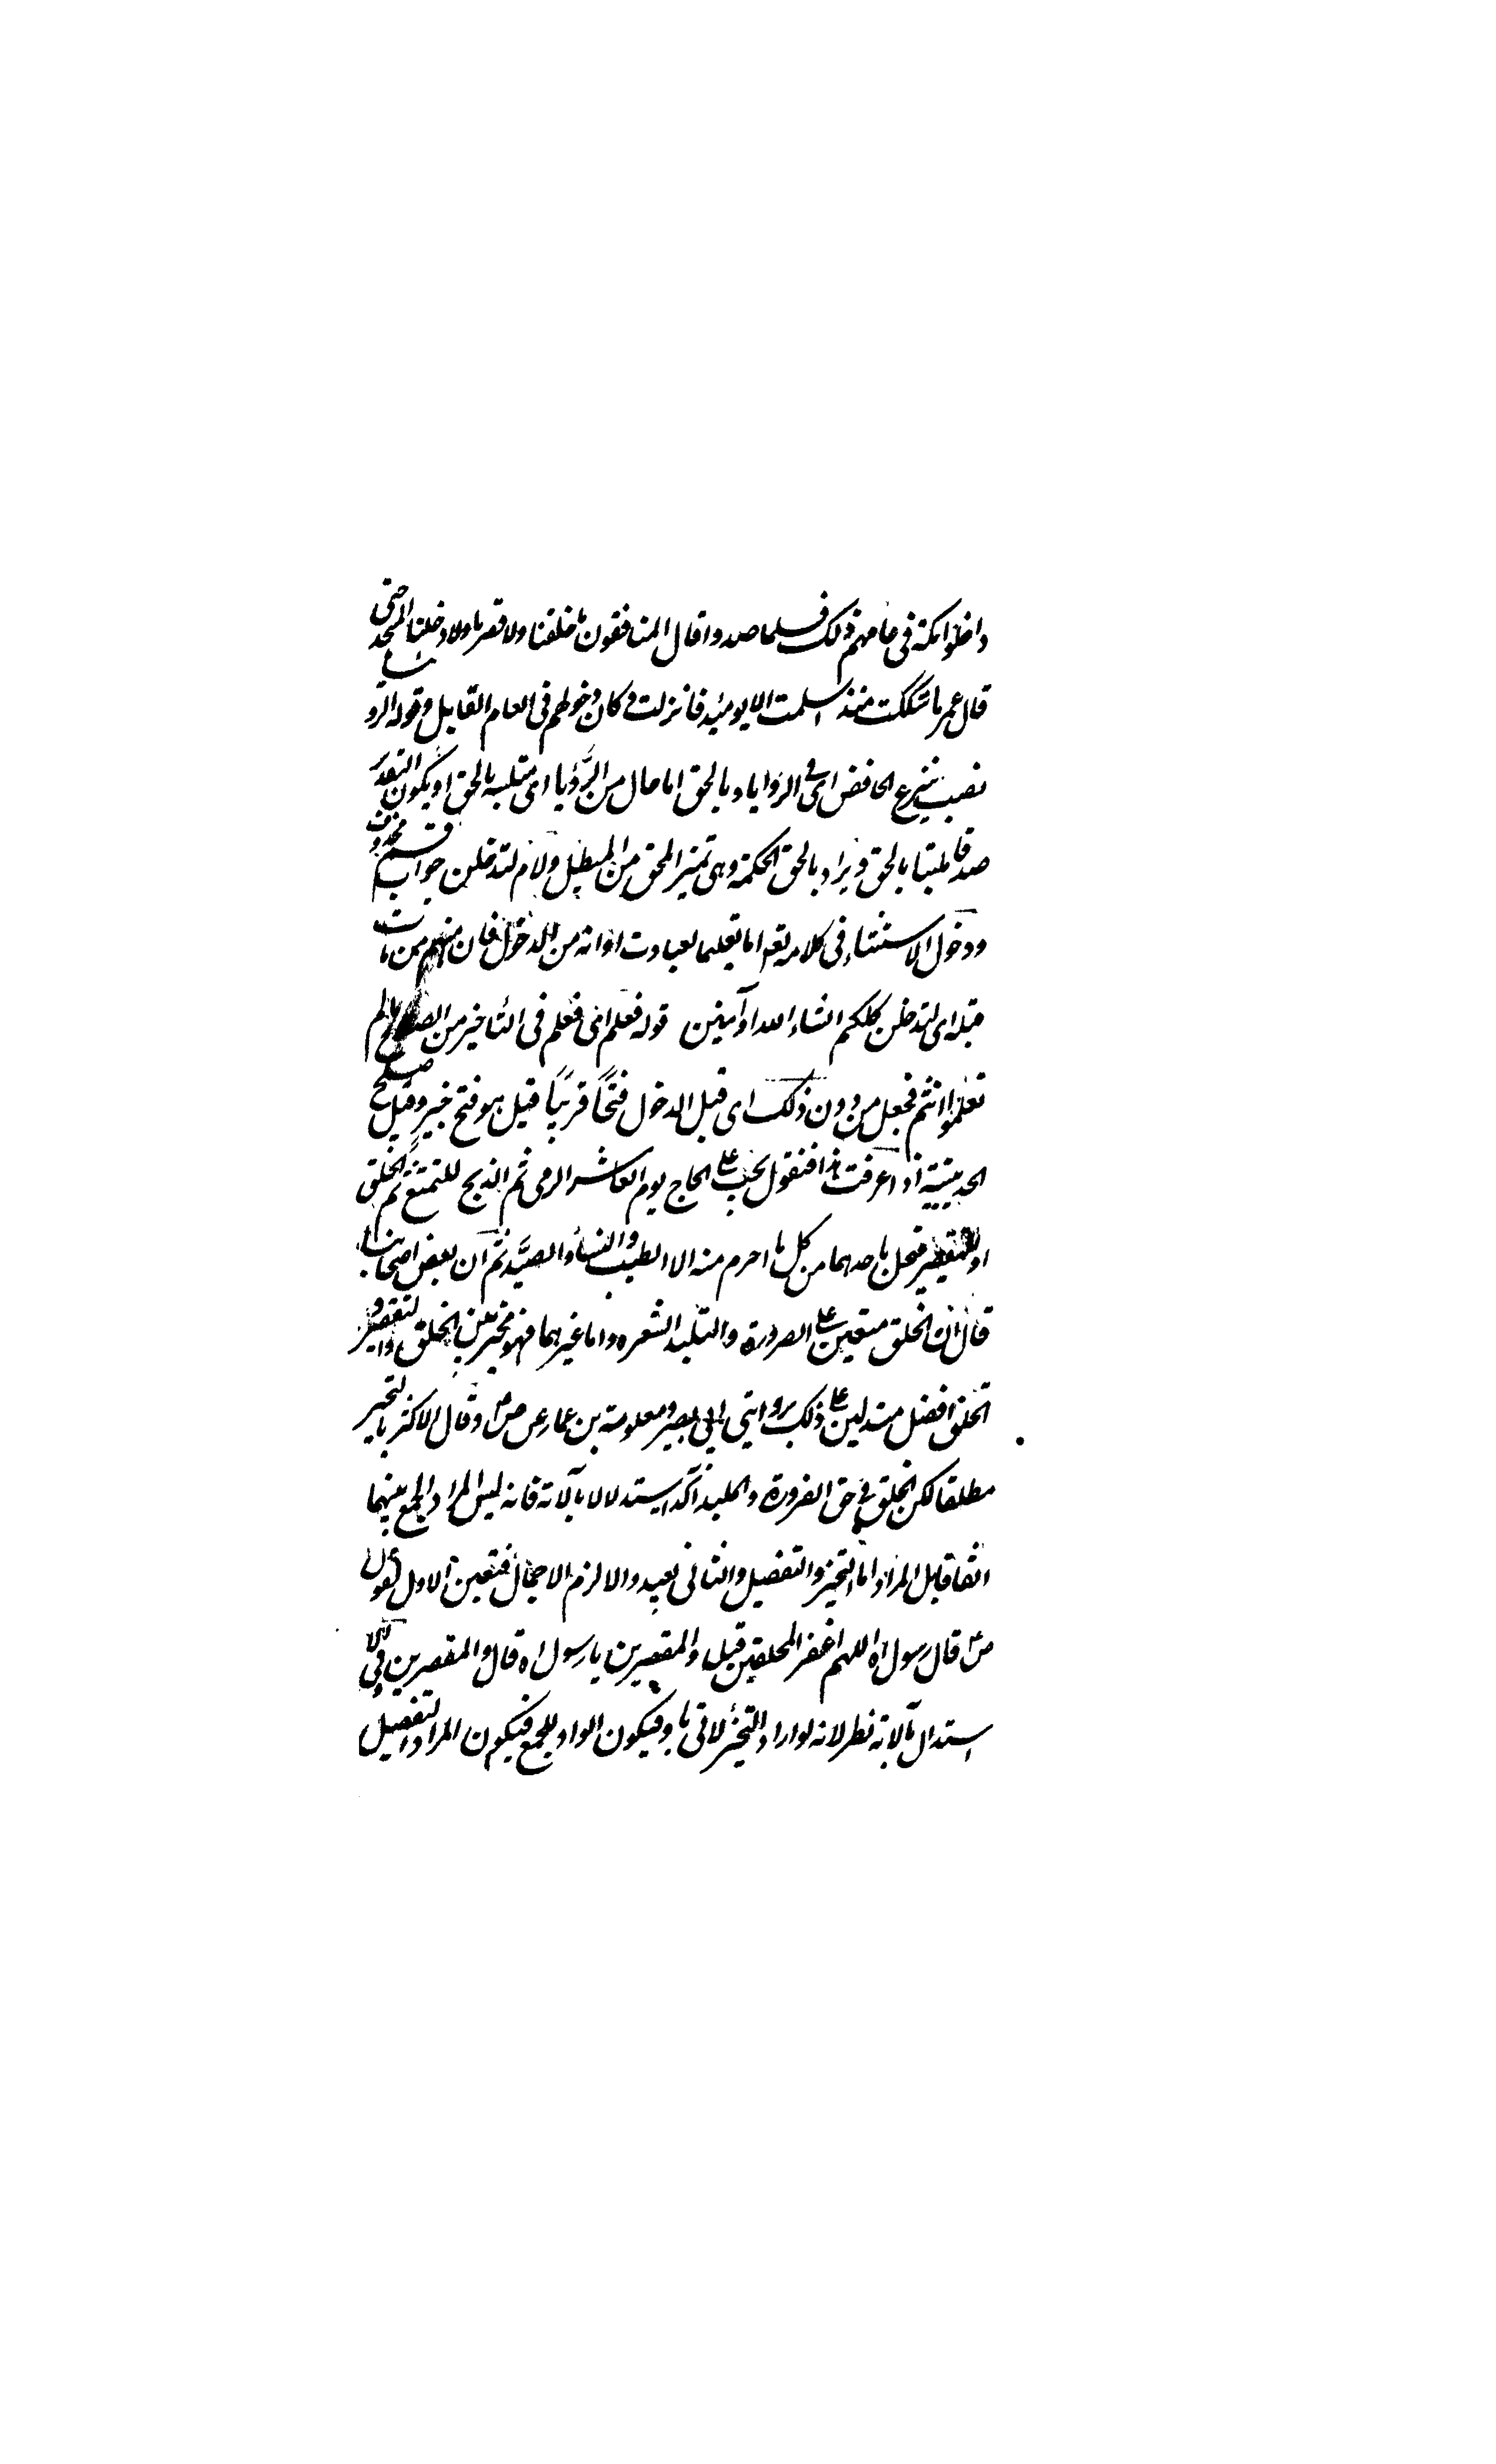 داخلوا مكة في عامهم ذلك فلما صدوا قال المنافقون ما حلقنا ولا قصرنا ولا دخلنا المسجد حتى
قال عمر ما شككت منذ اسلمت الا يومئذ فانزلت وكان دخولهم في العام القابل وقوله الرؤيا
نصب بنزع الخافض اى في الرؤيا وبالحق اما حال من الرؤيا اى متلبسة بالحق او يكون التقدير
صدقا ملتبسا بالحق ويراد بالحق الحكمة وهى تميز المحق من المبطل ولام لتدخلن جواب قسم محذوف
ودخول الاستثناء في كلامه تعه اما تعليما لعباده من الدخول فان منهم من مات
قبله اى لتدخلن كلكم انشاء الله او آمنين قوله فعلم اى فعلم في التأخير من الصلاح ما لم
تعلموا انتم فجعل من دون ذلك اى قبل الدخول فتحًا قريبًا قيل هو فتح خيبر وقيل صلح
الحديبية اذا عرفت هذا فنقول يجب على الحاج يوم العاشر الرمى ثم الذبح للتمتع ثم الحلق
او التقصير فيحل باحدهما من كل ما احرم منه الا الطيب والنساء والصيد ثم ان بعض اصحابنا
قال ان الحلق متعين على الصرورة والملبد الشعره واما غيرهما فهو مخير بين الحلق والتقصير و
الحلق افضل مستدلين على ذلك بروايتى ابي بصير ومعوية بن عمار عن ص م وقال الاكثر بالتخيير
مطلقا لكن الحلق في حق الصرورة والملبد آكد استدلالا بالآية فانه ليس المراد الجمع بينهما
اتفاقا بل المراد اما التخيير او التفصيل والثاني بعيد والا لزم الاجمال فتعين الاول لقول
ص م قال رسول الله اللهم اغفر للمحلقين قيل والمقصرين يا رسول الله قال والمقصرين وفي
استدلال بالآية نظر لانه لو اراد التخيير لاتى باو فيكون الواو للجمع فيكون المراد التفصيل